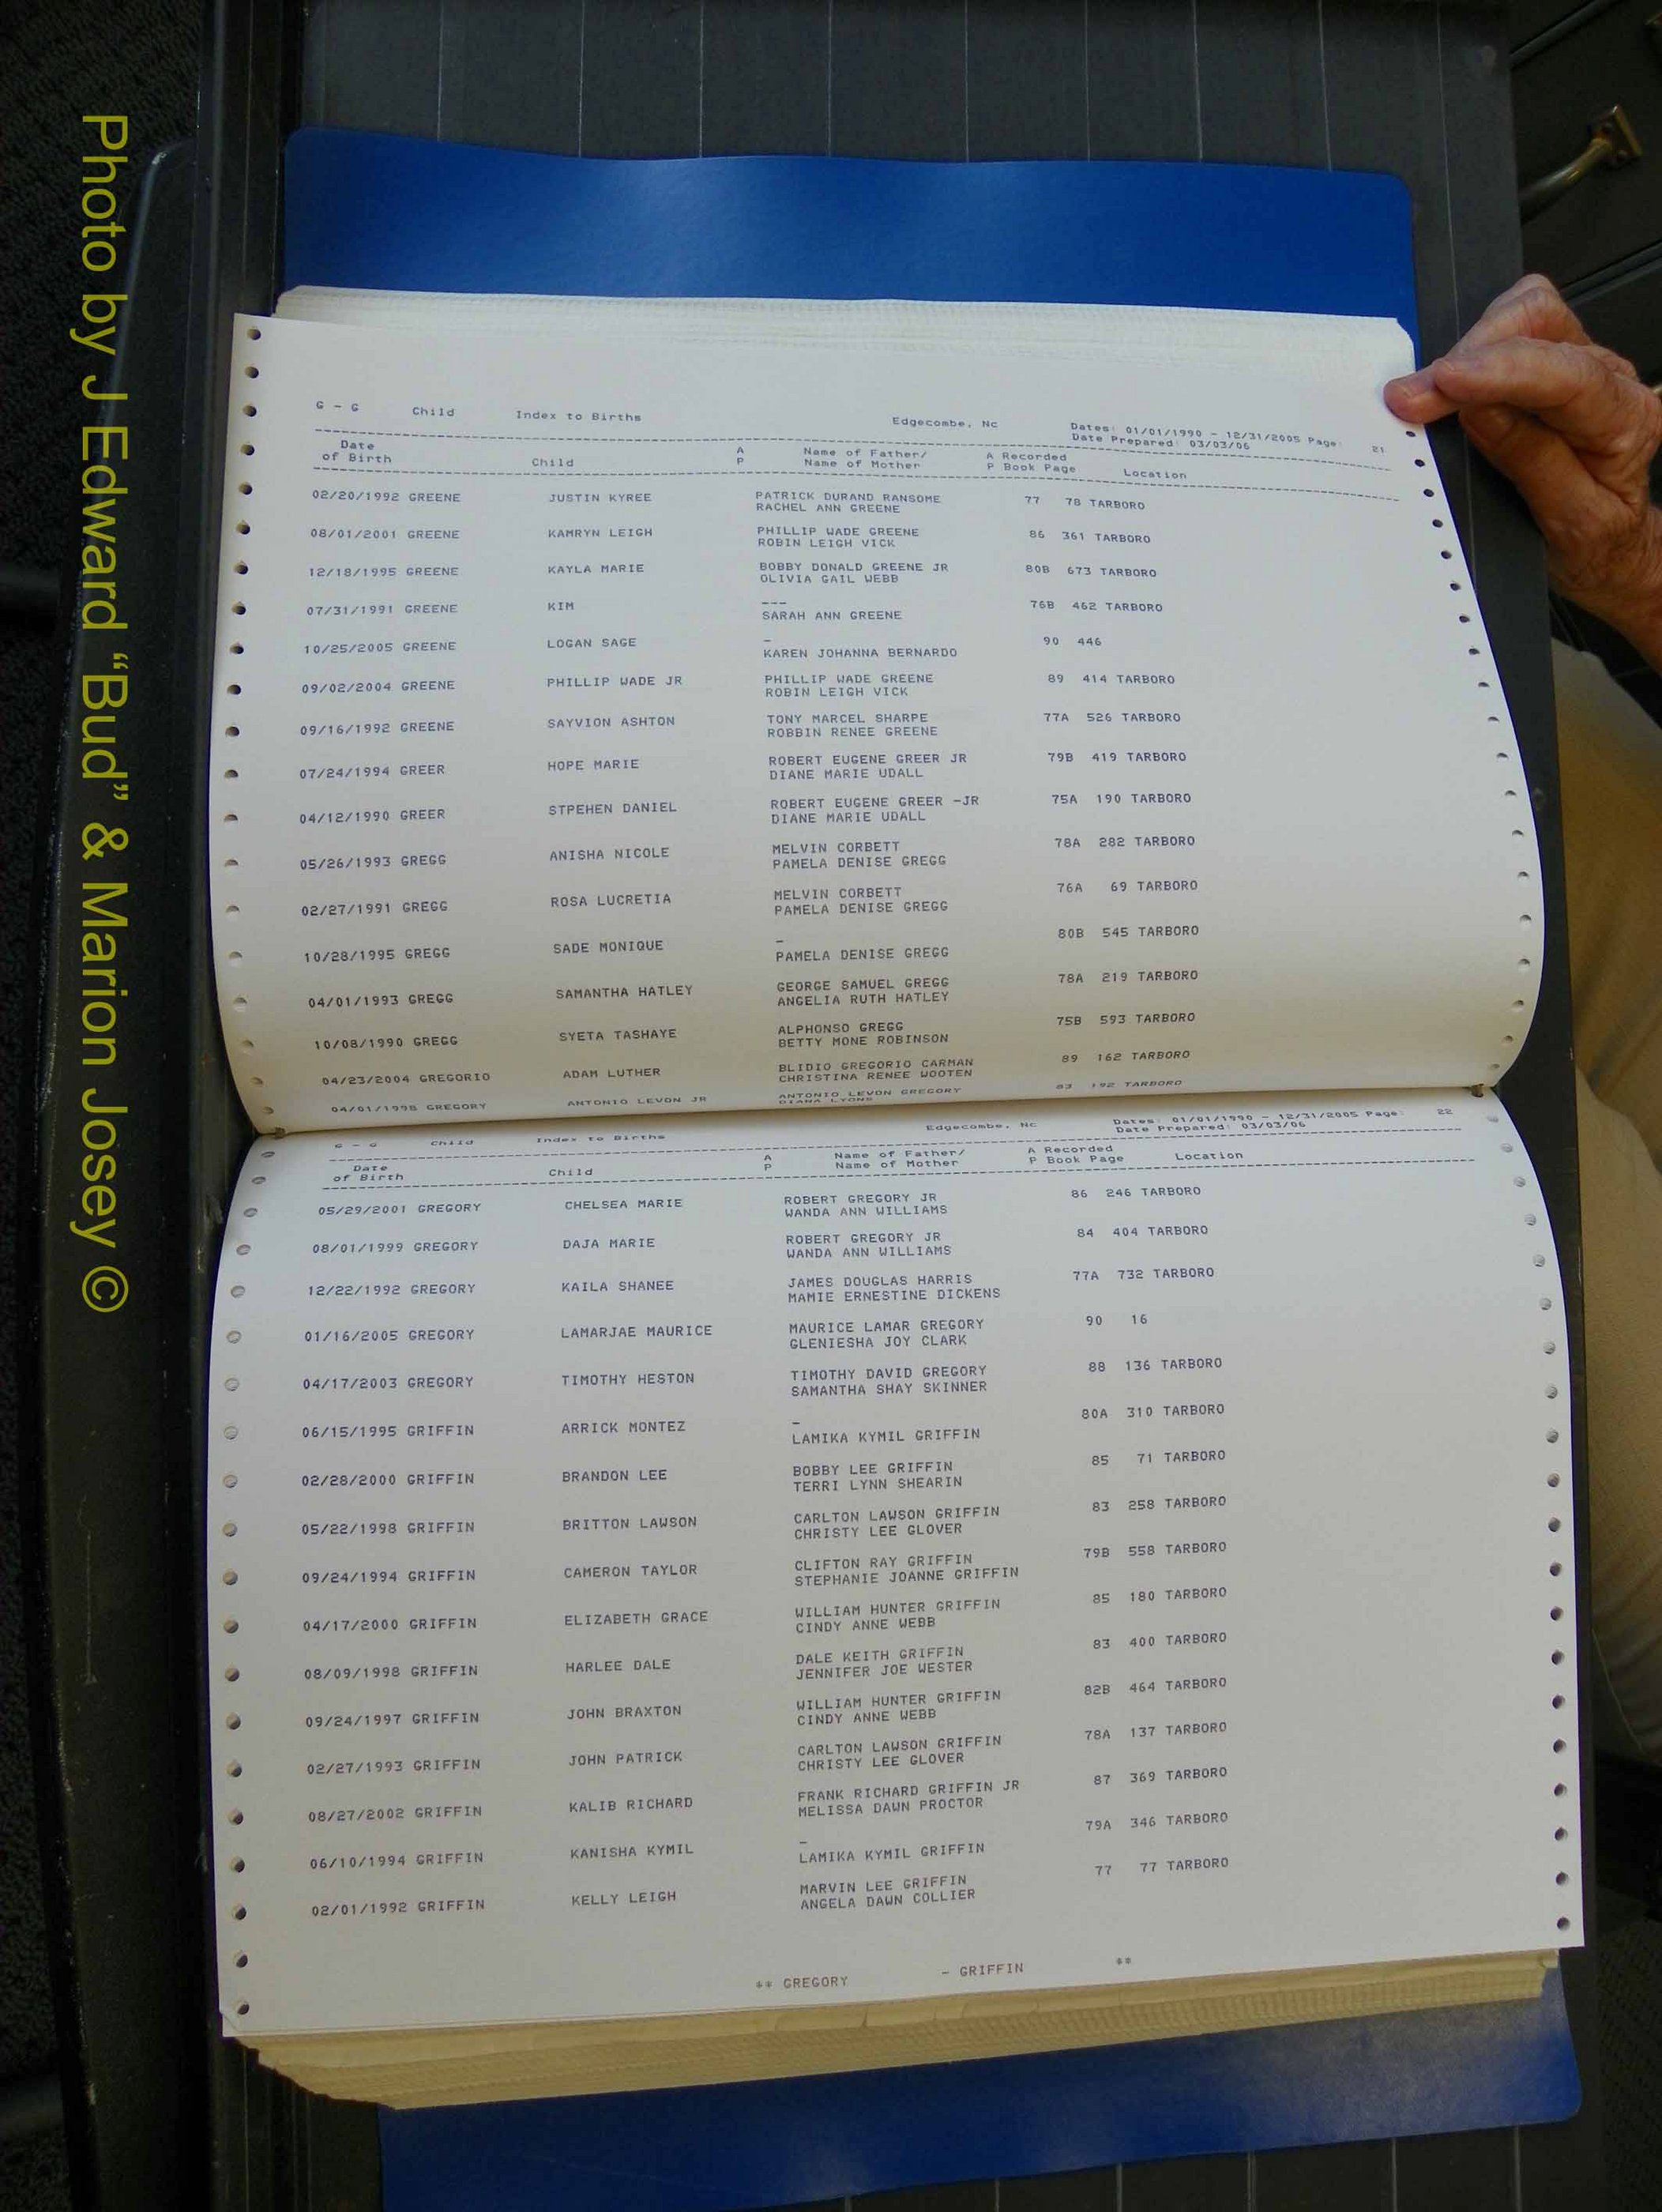 G - G Child Index to Births Edgecombe, Nc Dates: 01/01/1990 - 12/31/2005 Page: 21
Date Prepared: 03/03/06
Date of Birth Child A P Name of Father/ Name of Mother A P Recorded Book Page Location
02/20/1992 GREENE JUSTIN KYREE PATRICK DURAND RANSOME 77 78 TARBORO
RACHEL ANN GREENE
08/01/2001 GREENE KAMRYN LEIGH PHILLIP WADE GREENE 86 361 TARBORO
ROBIN LEIGH VICK
12/18/1995 GREENE KAYLA MARIE BOBBY DONALD GREENE JR 80B 673 TARBORO
OLIVIA GAIL WEBB
07/31/1991 GREENE KIM --- 76B 462 TARBORO
SARAH ANN GREENE
10/25/2005 GREENE LOGAN SAGE - 90 446
KAREN JOHANNA BERNARDO
09/02/2004 GREENE PHILLIP WADE JR PHILLIP WADE GREENE 89 414 TARBORO
ROBIN LEIGH VICK
09/16/1992 GREENE SAYVION ASHTON TONY MARCEL SHARPE 77A 526 TARBORO
ROBBIN RENEE GREENE
07/24/1994 GREER HOPE MARIE ROBERT EUGENE GREER JR 79B 419 TARBORO
DIANE MARIE UDALL
04/12/1990 GREER STPEHEN DANIEL ROBERT EUGENE GREER -JR 75A 190 TARBORO
DIANE MARIE UDALL
05/26/1993 GREGG ANISHA NICOLE MELVIN CORBETT 78A 282 TARBORO
PAMELA DENISE GREGG
02/27/1991 GREGG ROSA LUCRETIA MELVIN CORBETT 76A 69 TARBORO
PAMELA DENISE GREGG
10/28/1995 GREGG SADE MONIQUE - 80B 545 TARBORO
PAMELA DENISE GREGG
04/01/1993 GREGG SAMANTHA HATLEY GEORGE SAMUEL GREGG 78A 219 TARBORO
ANGELIA RUTH HATLEY
10/08/1990 GREGG SYETA TASHAYE ALPHONSO GREGG 75B 593 TARBORO
BETTY MONE ROBINSON
04/23/2004 GREGORIO ADAM LUTHER BLIDIO GREGORIO CARMAN 89 162 TARBORO
CHRISTINA RENEE WOOTEN
04/01/1998 GREGORY ANTONIO LEVON JR ANTONIO LEVON GREGORY 83 192 TARBORO
DIANA LYONS
G - G Child Index to Births Edgecombe, Nc Dates: 01/01/1990 - 12/31/2005 Page: 22
Date Prepared: 03/03/06
Date of Birth Child A P Name of Father/ Name of Mother A P Recorded Book Page Location
05/29/2001 GREGORY CHELSEA MARIE ROBERT GREGORY JR 86 246 TARBORO
WANDA ANN WILLIAMS
08/01/1999 GREGORY DAJA MARIE ROBERT GREGORY JR 84 404 TARBORO
WANDA ANN WILLIAMS
12/22/1992 GREGORY KAILA SHANEE JAMES DOUGLAS HARRIS 77A 732 TARBORO
MAMIE ERNESTINE DICKENS
01/16/2005 GREGORY LAMARJAE MAURICE MAURICE LAMAR GREGORY 90 16
GLENIESHA JOY CLARK
04/17/2003 GREGORY TIMOTHY HESTON TIMOTHY DAVID GREGORY 88 136 TARBORO
SAMANTHA SHAY SKINNER
06/15/1995 GRIFFIN ARRICK MONTEZ - 80A 310 TARBORO
LAMIKA KYMIL GRIFFIN
02/28/2000 GRIFFIN BRANDON LEE BOBBY LEE GRIFFIN 85 71 TARBORO
TERRI LYNN SHEARIN
05/22/1998 GRIFFIN BRITTON LAWSON CARLTON LAWSON GRIFFIN 83 258 TARBORO
CHRISTY LEE GLOVER
09/24/1994 GRIFFIN CAMERON TAYLOR CLIFTON RAY GRIFFIN 79B 558 TARBORO
STEPHANIE JOANNE GRIFFIN
04/17/2000 GRIFFIN ELIZABETH GRACE WILLIAM HUNTER GRIFFIN 85 180 TARBORO
CINDY ANNE WEBB
08/09/1998 GRIFFIN HARLEE DALE DALE KEITH GRIFFIN 83 400 TARBORO
JENNIFER JOE WESTER
09/24/1997 GRIFFIN JOHN BRAXTON WILLIAM HUNTER GRIFFIN 82B 464 TARBORO
CINDY ANNE WEBB
02/27/1993 GRIFFIN JOHN PATRICK CARLTON LAWSON GRIFFIN 78A 137 TARBORO
CHRISTY LEE GLOVER
08/27/2002 GRIFFIN KALIB RICHARD FRANK RICHARD GRIFFIN JR 87 369 TARBORO
MELISSA DAWN PROCTOR
06/10/1994 GRIFFIN KANISHA KYMIL - 79A 346 TARBORO
LAMIKA KYMIL GRIFFIN
02/01/1992 GRIFFIN KELLY LEIGH MARVIN LEE GRIFFIN 77 77 TARBORO
ANGELA DAWN COLLIER
** GREGORY - GRIFFIN **
Photo by J Edward "Bud" & Marion Josey ©